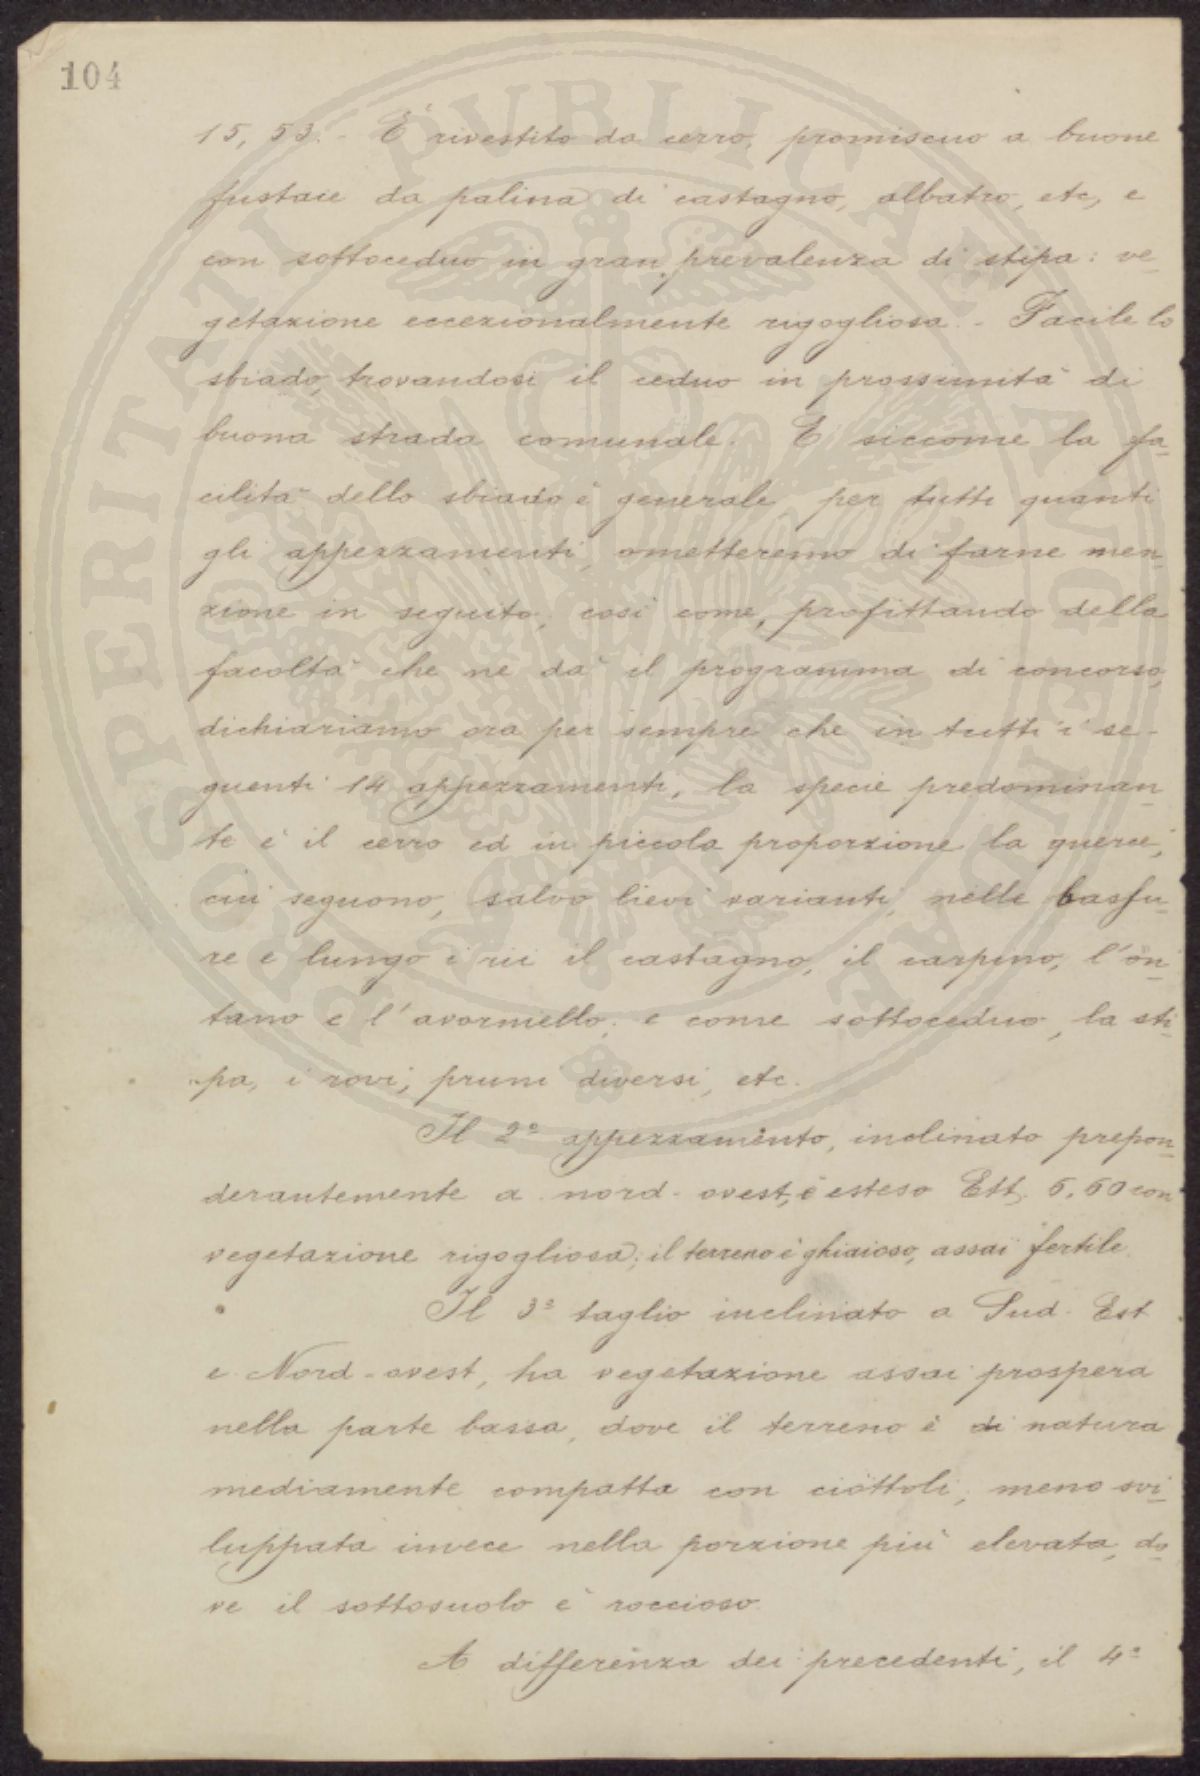 104
15, 53. - È rivestito da cerro, promiscuo a buone
fustaie da palina di castagno, albatro, etc, e
con sottoceduo in gran prevalenza di stipa: ve-
getazione eccezionalmente rigogliosa. - Facile lo
sbiado, trovandosi il ceduo in prossimità di
buona strada comunale. E siccome la fa-
cilità dello sbiado è generale per tutti quanti
gli appezzamenti, ometteremo di farne men-
zione in seguito, così come, profittando della
facoltà che ne dà il programma di concorso,
dichiariamo ora per sempre che in tutti i se-
guenti 14 appezzamenti, la specie predominan-
te è il cerro ed in piccola proporzione la querce,
cui seguono, salvo lievi varianti, nelle bassu-
re e lungo i rii il castagno, il carpino, l'on-
tano e l'avorniello, e come sottoceduo, la sti-
pa, i rovi, pruni diversi, etc.
Il 2º appezzamento, inclinato prepon-
derantemente a nord-ovest, è esteso Ett. 6,60 con
vegetazione rigogliosa; il terreno è ghiaioso, assai fertile.
Il 3º taglio inclinato a Sud-Est
e Nord-ovest, ha vegetazione assai prospera
nella parte bassa, dove il terreno è di natura
mediamente compatta con ciottoli, meno svi-
luppata invece nella porzione più elevata, do-
ve il sottosuolo è roccioso.
A differenza dei precedenti, il 4º
PROSPERITATI PVBLICAE AVGENDAE